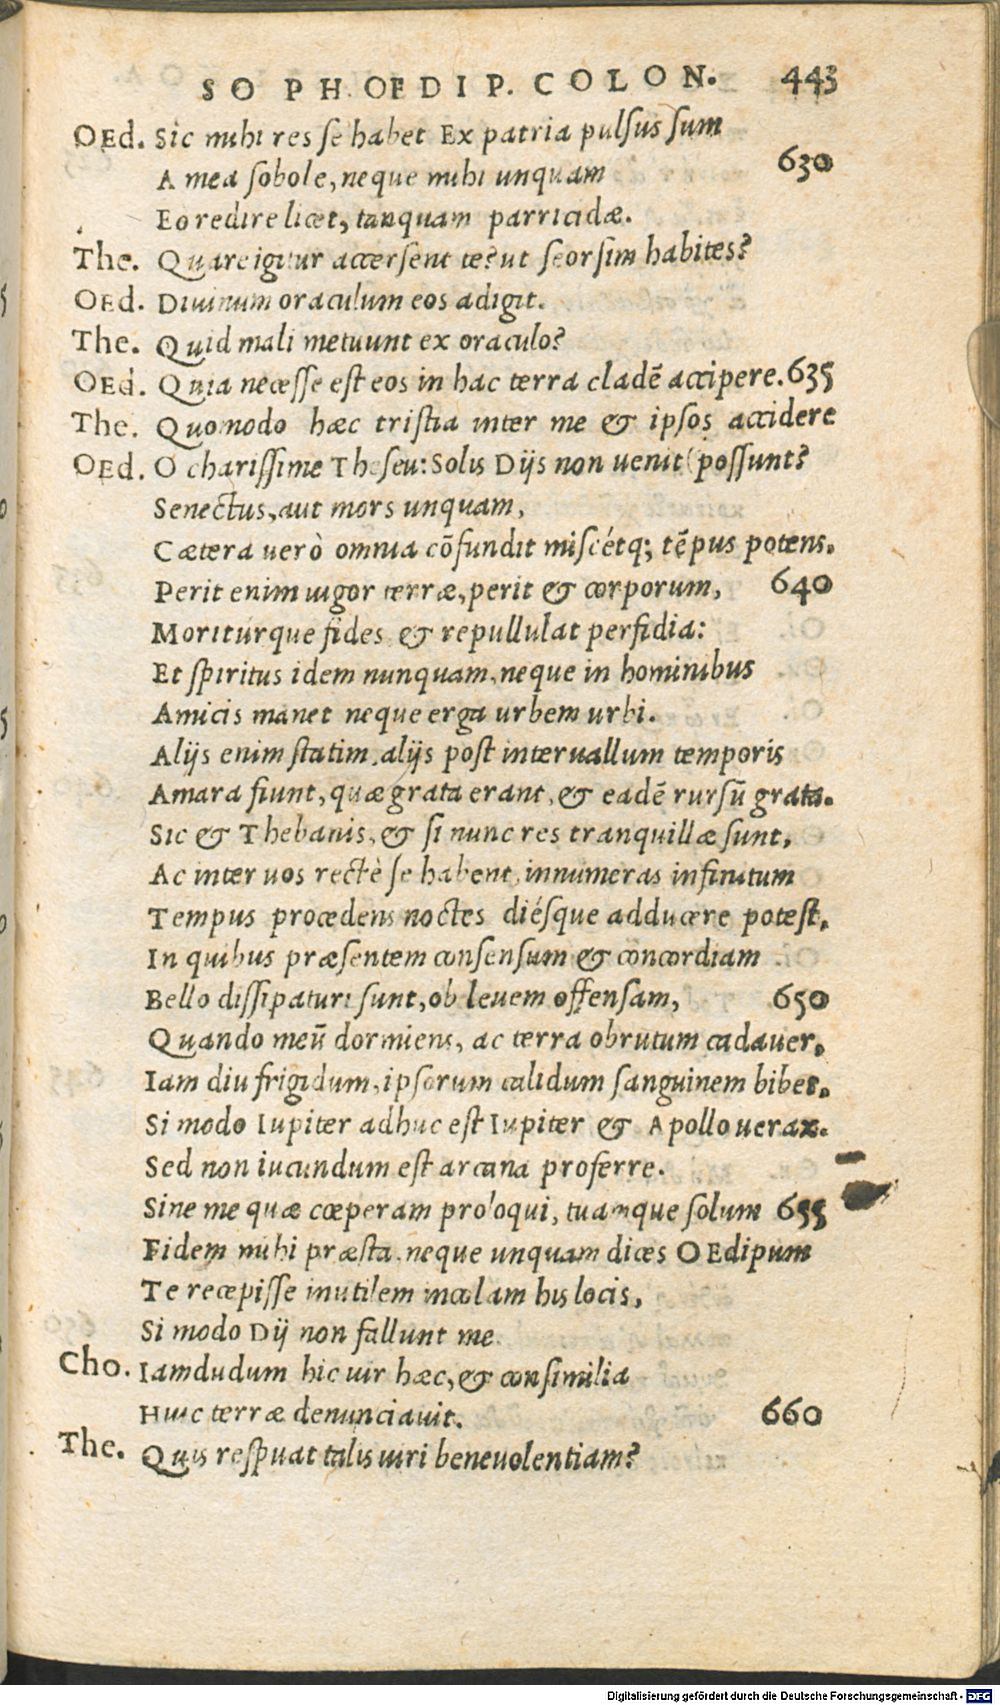 SOPH. OEDIP. COLON. 443
OEd. Sic mihi res se habet Ex patria pulsus sum
A mea sobole, neque mihi unquam 630
Eo redire licet, tanquam parricidæ.
The. Quare igitur accersent te? ut seorsim habites?
OEd. Diuinum oraculum eos adigit.
The. Quid mali metuunt ex oraculo?
OEd. Quia necesse est eos in hac terra cladē accipere. 635
The. Quomodo hæc tristia inter me & ipsos accidere
OEd. O charissime Theseu: Solis Dijs non uenit (possunt?
Senectus, aut mors unquam,
Cætera uerò omnia cōfundit miscétq; tēpus potens.
Perit enim uigor terræ, perit & corporum, 640
Moriturque fides & repullulat perfidia:
Et spiritus idem nunquam, neque in hominibus
Amicis manet neque erga urbem urbi.
Alijs enim statim, alijs post interuallum temporis
Amara fiunt, quæ grata erant, & eadē rursū grata.
Sic & Thebanis, & si nunc res tranquillæ sunt,
Ac inter uos rectè se habent, innumeras infinitum
Tempus procedens noctes diésque adducere potest,
In quibus præsentem consensum & concordiam
Bello dissipaturi sunt, ob leuem offensam, 650
Quando meū dormiens, ac terra obrutum cadauer,
Iam diu frigidum, ipsorum calidum sanguinem bibet,
Si modo Iupiter adhuc est Iupiter & Apollo uerax.
Sed non iucundum est arcana proferre.
Sine me quæ cœperam proloqui, tuamque solum 655
Fidem mihi præsta neque unquam dices OEdipum
Te recepisse inutilem incolam his locis,
Si modo Dij non fallunt me.
Cho. Iamdudum hic uir hæc, & consimilia
Huic terræ denunciauit. 660
The. Quis respuat talis uiri beneuolentiam?
Digitalisierung gefördert durch die Deutsche Forschungsgemeinschaft - DFG